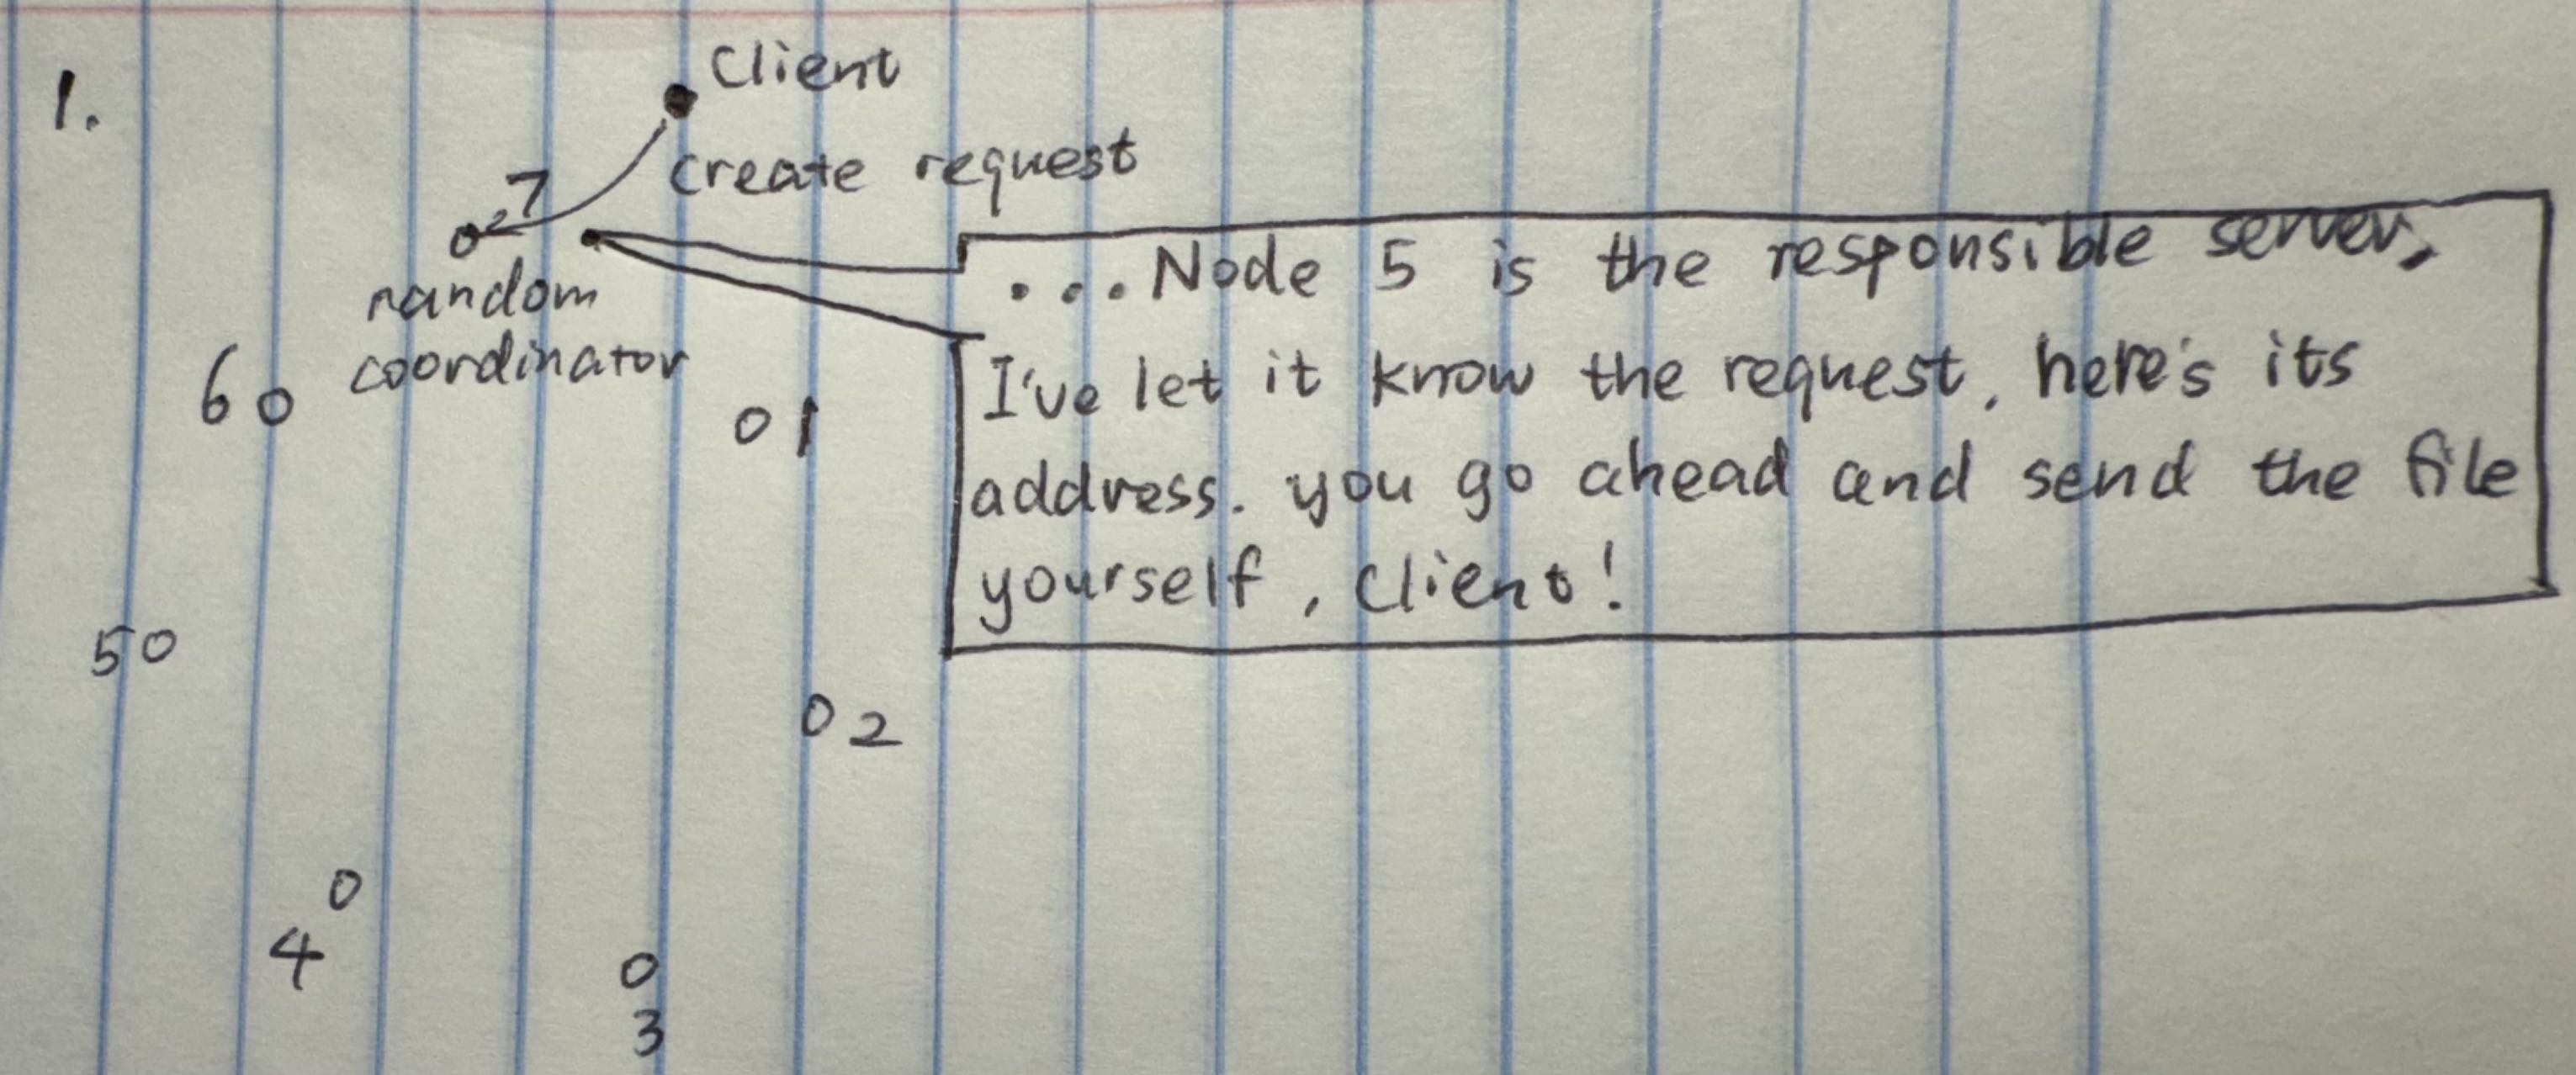 1.
Client
create request
7
random
coordinator
6
1
...Node 5 is the responsible server,
I've let it know the request, here's its
address. you go ahead and send the file
yourself, Client!
5
2
4
3